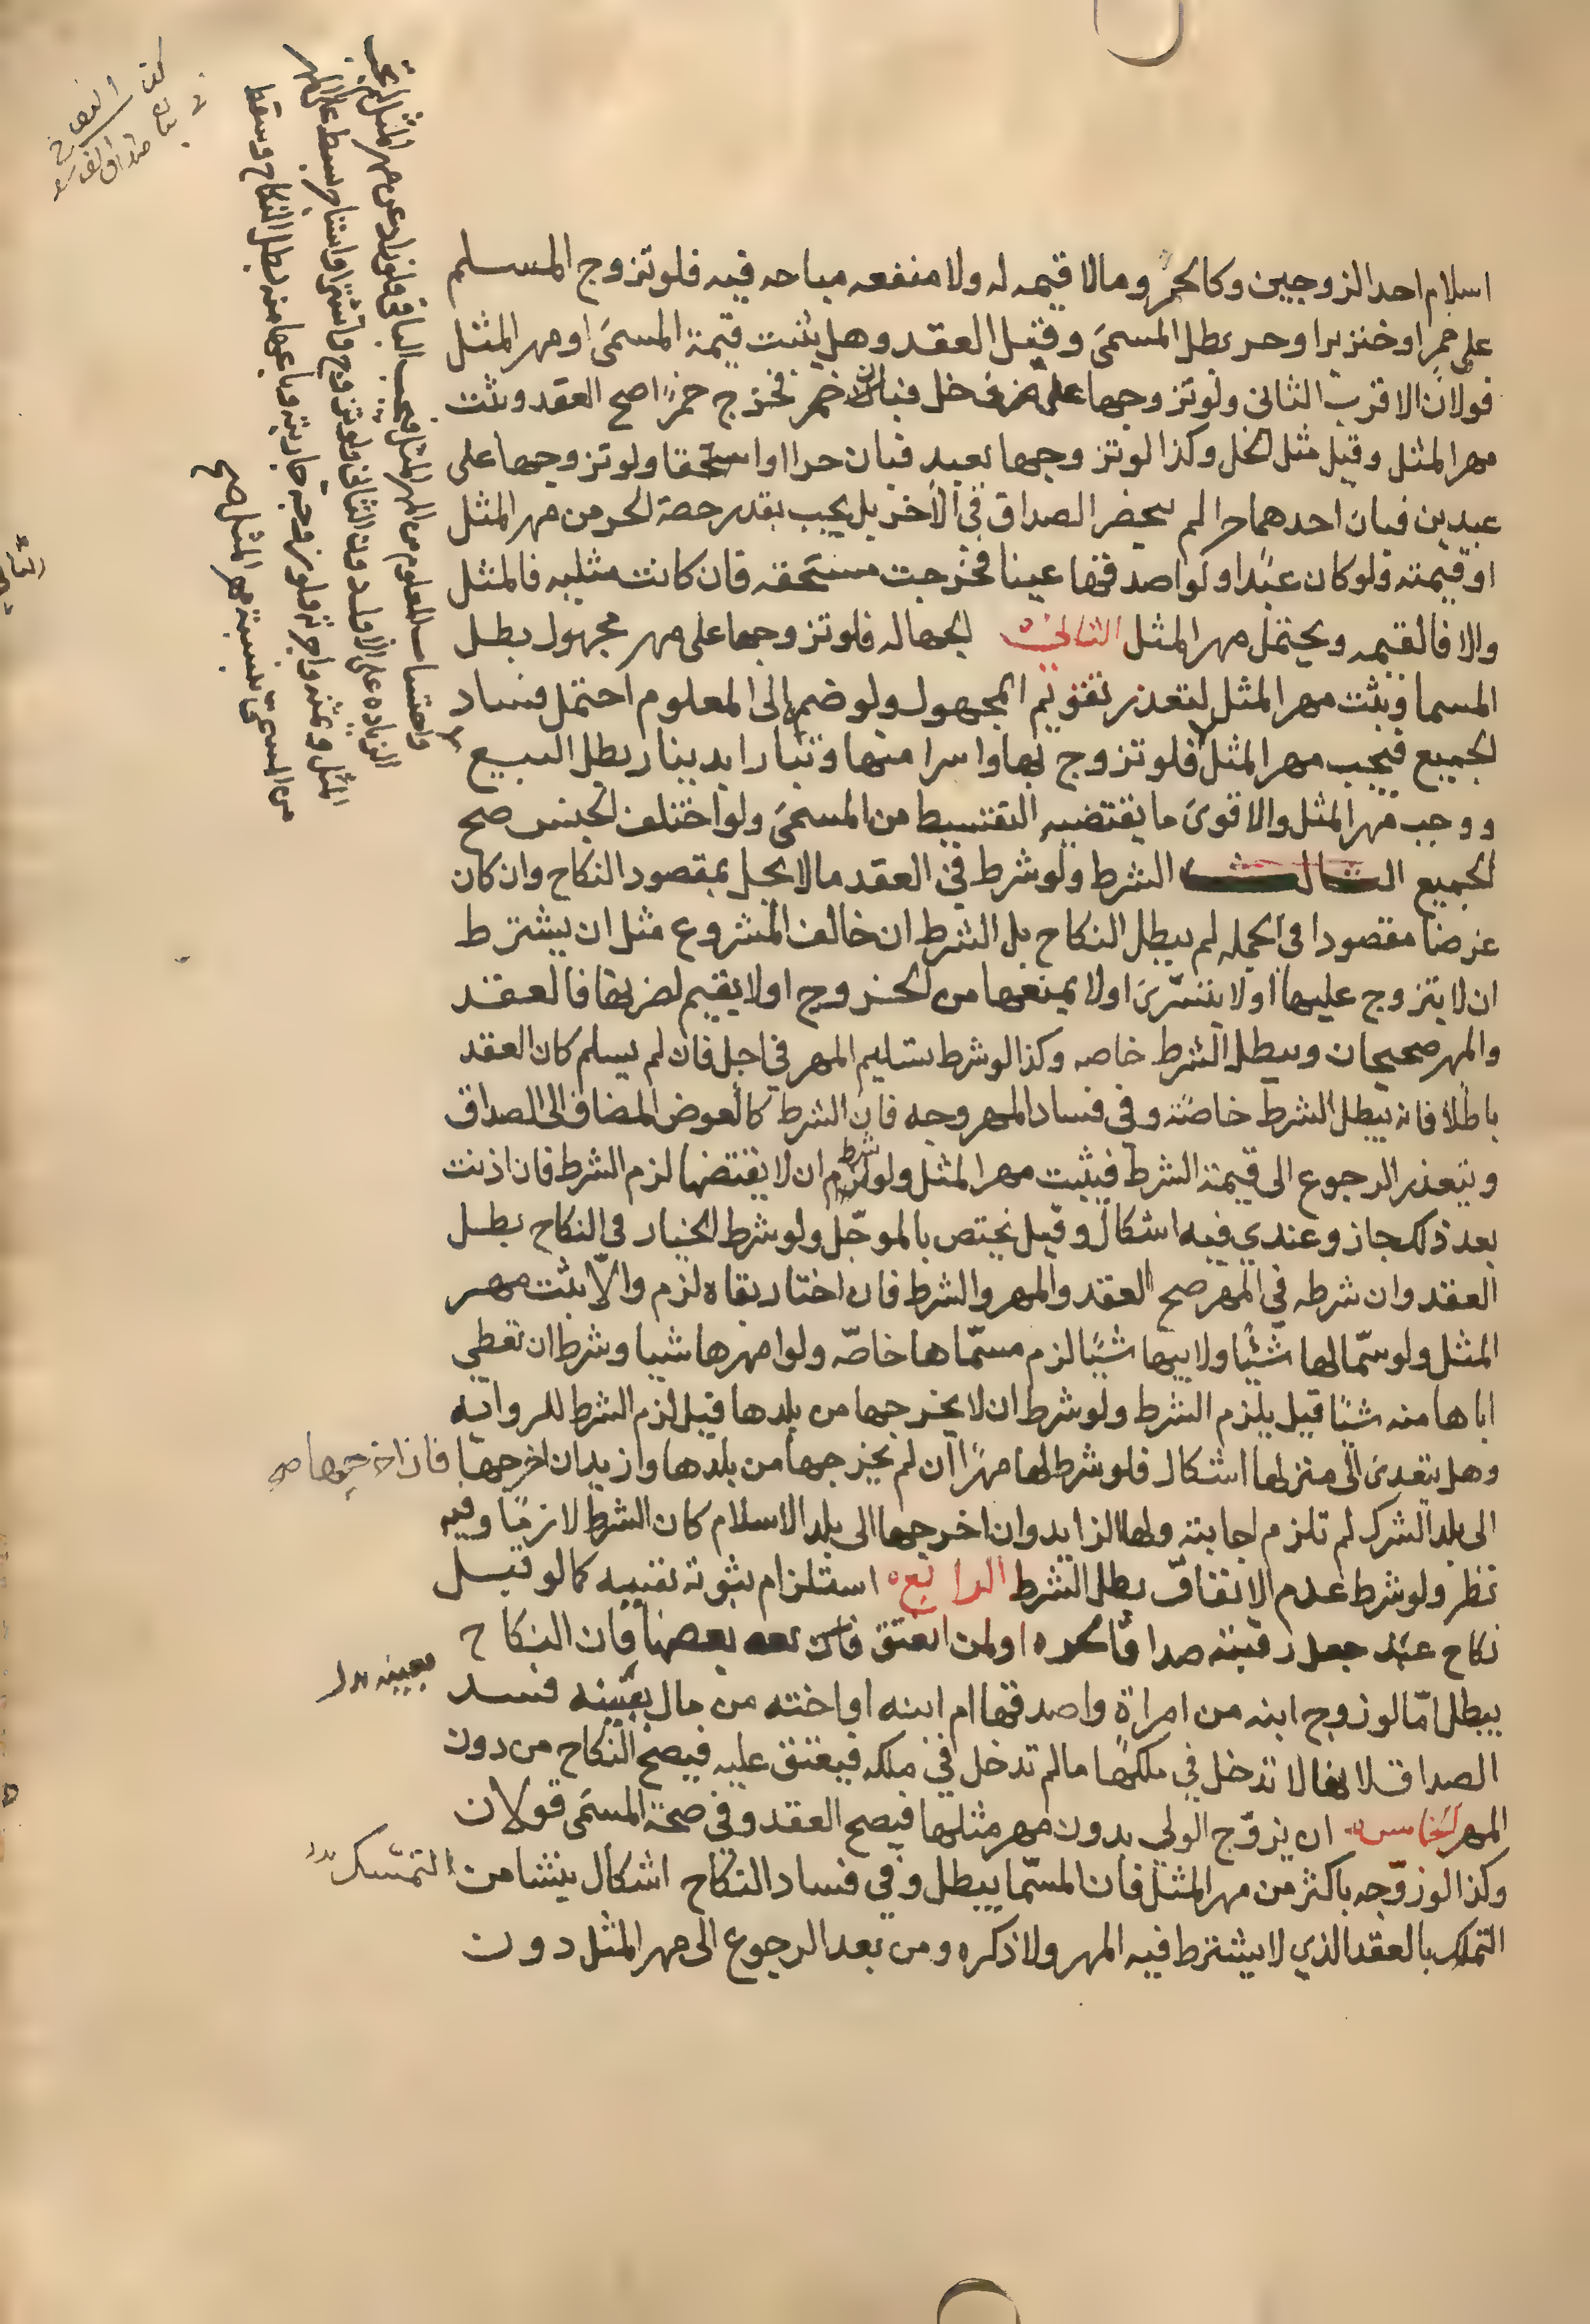 اسلام احد الزوجين وكالحر وما لا قيمه له ولا منفعه مباحه فيه فلو تزوج المسلم
على خمر او خنزير او حر بطل المسمى وقيل العقد وهل يثبت قيمة المسمى او مهر المثل
قولان الاقرب الثانى ولو تزوجها على ظرف خل فبان خمر فخرج خمرا صح العقد ويثبت
مهر المثل وقيل مثل الخل وكذا لو تزوجها بعبد فبان حرا او مستحقا ولو تزوجها على
عبدين فبان احدهما حرا لم ينحصر الصداق في الآخر بل يجب بقدر حصة الحر من مهر المثل
او قيمته ولو كان عبدا ولو اصدقها عينا فخرجت مستحقه فان كانت مثليه فالمثل
والا فالقيمه ويحتمل مهر المثل الثانى الجهاله فلو تزوجها على مهر مجهول بطل
المسما ويثبت مهر المثل لتعذر تقويم المجهول ولو ضم الى المعلوم احتمل فساد
الجميع فيجب مهر المثل فلو تزوج بها واشترا منها دينارا بدينار بطل البيع
ووجب مهر المثل والاقوى ما يقتضيه التقسيط من المسمى ولو اختلف الجنس صح
الجميع الشرط ولو شرط في العقد ما لا يخل بمقصود النكاح وان كان
غرضا مقصودا في الجمله لم يبطل النكاح بل الشرط ان خالف المشروع مثل ان يشترط
ان لا يتزوج عليها او لا يتسرى او لا يمنعها من الخروج او لا يقيم لضربها فالعقد
والمهر صحيحان ويبطل الشرط خاصه وكذا لو شرط تسليم المهر في اجل فان لم يسلم كان العقد
باطلا فانه يبطل الشرط خاصة وفي فساد المهر وجه فان الشرط كالعوض المضاف الى الصداق
ويتعذر الرجوع الى قيمة الشرط فيثبت مهر المثل ولو شرط ان لا يقتضها لزم الشرط فان اذنت
بعد ذلك جاز وعندي فيه اشكال وقيل يختص بالموجل ولو شرط الخيار في النكاح بطل
العقد وان شرطه في المهر صح العقد والمهر والشرط فان اختار بقاه لزم والا يثبت مهر
المثل ولو سما لها شيئا ولابيها شيئا لزم مسماها خاصه ولو امهرها شيبا وشرط ان تعطي
اباها منه شيئا قيل يلزم الشرط ولو شرط ان لا يخرجها من بلدها قيل لزم الشرط للروايه
وهل يتعدى الى منزلها اشكال فلو شرط لها مهرا ان لم يخرجها من بلدها وازيد ان اخرجها فان اخرجها صح
الى بلد الشرك لم تلزم اجابته ولها الزايد وان اخرجها الى بلد الاسلام كان الشرط لازما وفيه
نظر ولو شرط عدم الانفاق بطل الشرط الرابع استلزام ثبوته نفيه كما لو قبل
نكاح عبد جعل رقبته صداقا لحره او لمن انعتق بعضها فان النكاح
يبطل اما لو زوج ابنه من امراة واصدقها ام ابنه او اخته من مال بعينه فسد
بعينه بدل
الصداق لانها لا تدخل في ملكها ما لم تدخل في ملكه فيعتق عليه فيصح النكاح من دون
المهر الخامس ان يزوج الولي بدون مهر مثلها فيصح العقد وفي صحة المسمى قولان
وكذا لو زوجه باكثر من مهر المثل فان المسما يبطل وفي فساد النكاح اشكال ينشا من التمسك بدل
التملك بالعقد الذي لا يشترط فيه المهر ولا ذكره ومن بعد الرجوع الى مهر المثل دون
واحتساب المعلوم من المهر المثل فيجب الباقى فلو زاد عن مهر المثل لم يجب
الزياده على الاول دون الثانى ولو تزوج واشترى واستاجر بسط على مهر
المثل وثمنه واجرته فلو زوجه جاريته وباعها منه بطل النكاح وسقط
من المسمى بنسبة مهر المثل صح